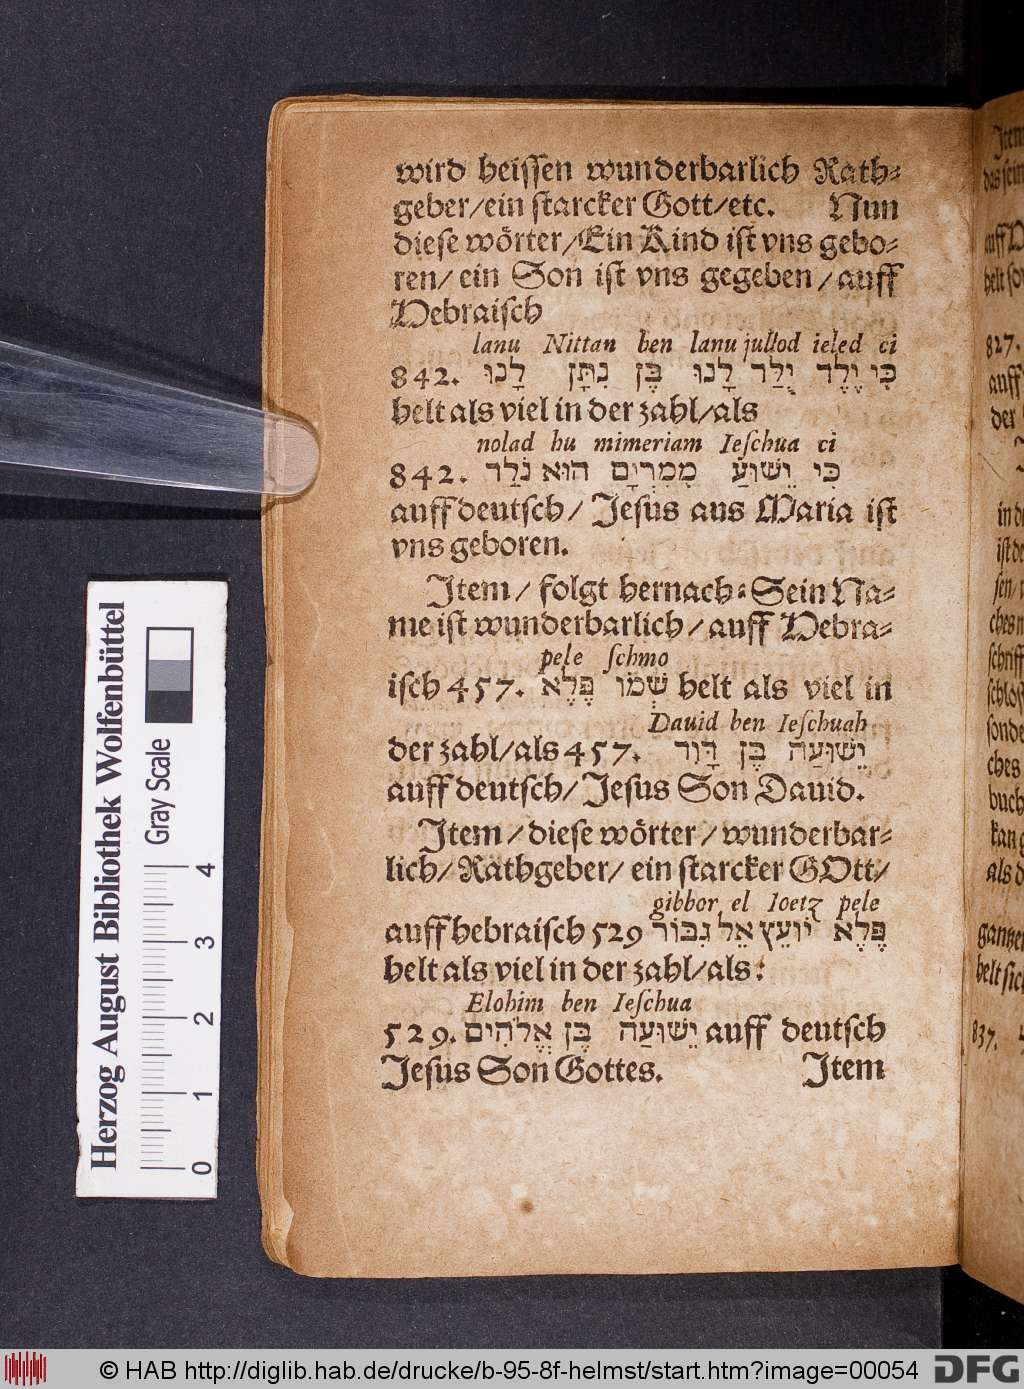 wird heiſſen wunderbarlich Rath⸗
geber/ein ſtarcker Gott/etc. Nun
dieſe wörter/Ein Kind iſt vns gebo⸗
ren/ ein Son iſt vns gegeben/auff
Hebraiſch
lanu Nittan ben lanu jullod ieled ci
842. כִּי יֶלֶד יֻלַּד לָנוּ בֶּן נִתָּן לָנוּ
helt als viel in der zahl/als
nolad hu mimeriam Ieſchua ci
842. כִּי יֵשׁוּעַ מִמִּרְיָם הוּא נֹלַד
auff deutſch/ Jeſus aus Maria iſt
vns geboren.
Item/ folgt hernach: Sein Na⸗
me iſt wunderbarlich/auff Hebra⸗
pele ſchmo
iſch 457. שְׁמוֹ פֶּלֶא helt als viel in
Dauid ben Ieſchuah
der zahl/als 457. יֵשׁוּעַה בֶּן דָּוִד
auff deutſch/ Jeſus Son Dauid.
Item/dieſe wörter/wunderbar⸗
lich/Rathgeber/ ein ſtarcker GOtt/
gibbor el Ioetz pele
auff hebraiſch 529 פֶּלֶא יוֹעֵץ אֵל גִּבּוֹר
helt als viel in der zahl/als:
Elohim ben Ieſchua
529. יֵשׁוּעַה בֶּן אֱלֹהִים auff deutſch
Jeſus Son Gottes. Item
827.
837.
Herzog August Bibliothek Wolfenbüttel
Gray Scale
0 1 2 3 4
© HAB http://diglib.hab.de/drucke/b-95-8f-helmst/start.htm?image=00054
DFG